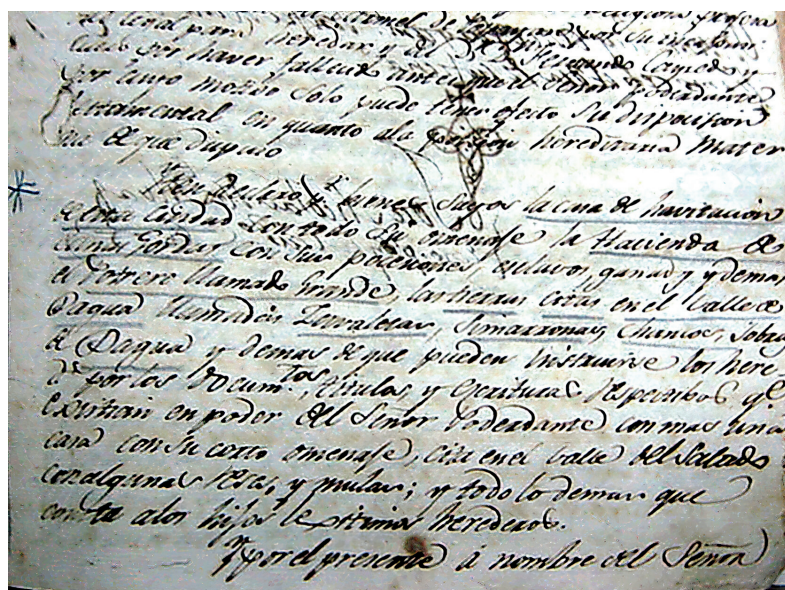 para heredar, y el Dn Fernando Cayzedo y
por haver fallecido antes que el Señor Podeadante
por cuyo motivo solo puede tener efecto su disposicion
testamental en quanto ala porcion hereditaria Mater
na de que dispuso
Yten declaro pr. bienes suyos la casa de havitacion
de esta Ciudad con todo su omenase la Hacienda de
con sus poseciones, esclavos, ganados y demas
el Potrero llamado Grande, las tierras citas en el Valle de
Dagua llamadas Zavaletas, Simarronas, Chancos, Sobras
de Dagua y demas de que pueden instruirse los here-
ds por los Documtos, titulos, y escrituras respectibos qe.
existian en poder del Señor Podeadante con mas una
casa con su corto omenase, cita en el Valle del Salado
con algunas reses, y mulas; y todo lo demas que
consta alos hijos lexitimos herederos.
Y por el presente á nombre del Señor